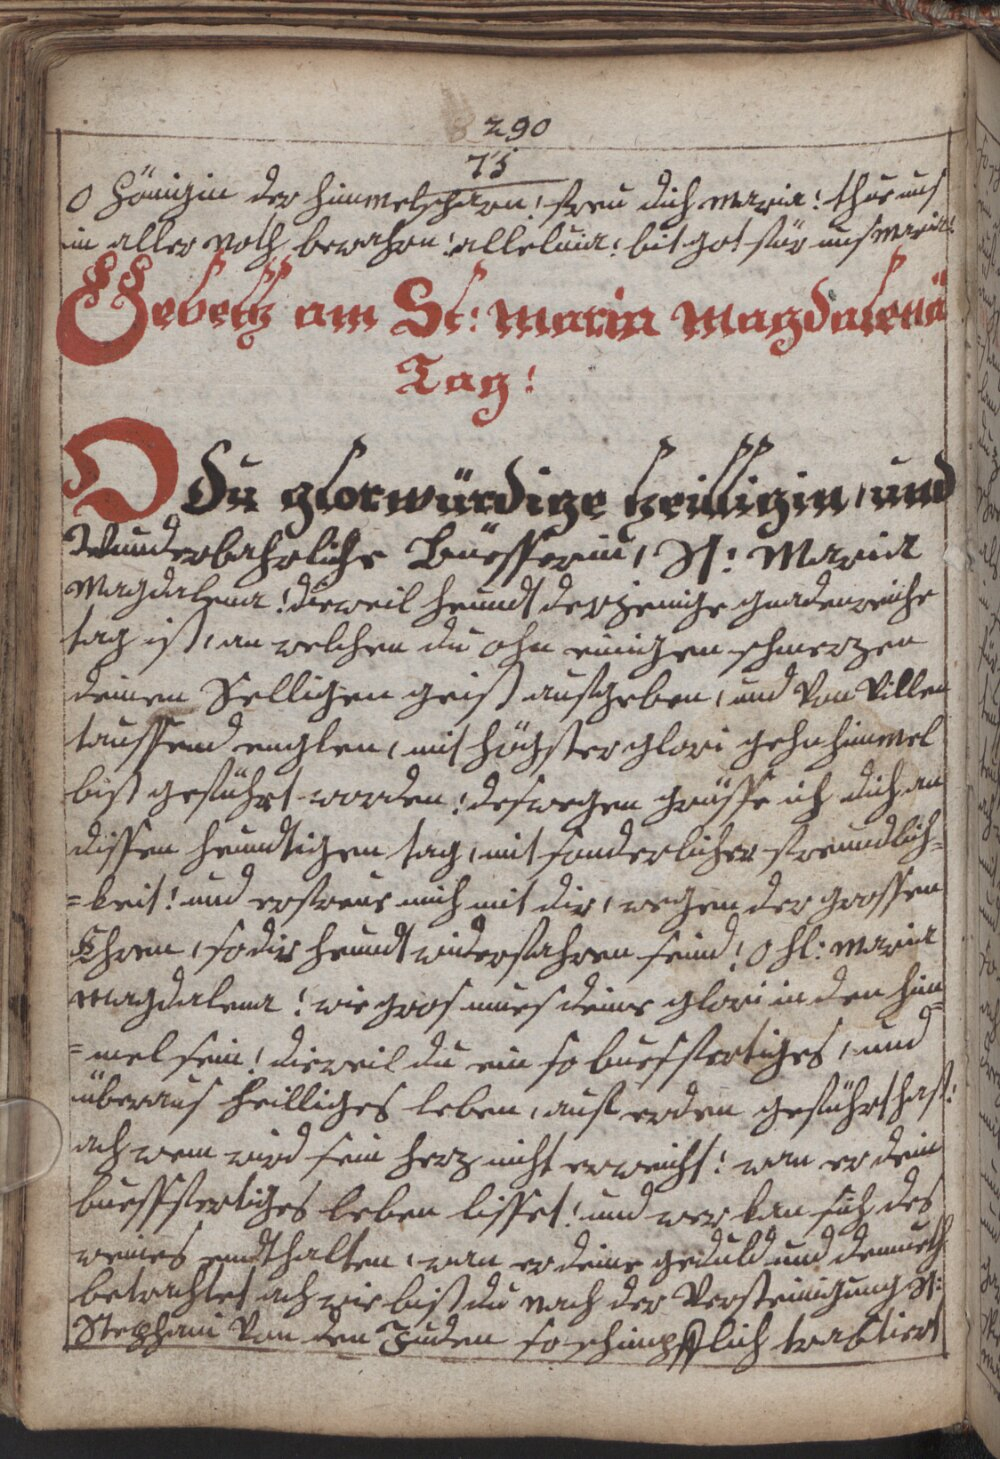 290
75
O Königin der himmelscharn! freu dich maria! thue uns
in aller noth bewahrn! alleluia! bit got für uns maria!
Gebeth am St: maria magdalenä
Tag!
O du glorwürdige heilligin, und
Wunderbahrliche Büesserin, St: Maria
Magdalena! dieweil heundt derjenige gnadenreiche
tag ist, an welchen du ohn einigen schmerzen
deinen Selligen geist aufgeben, und von villen
taussend englen, mit högster glori gehn himmel
bist geführt worden! deswegen grüsse ich dich an
dissen heundtigen tag, mit sonderlicher freundlich=
=keit! und erfreue mich mit dir, wegen der grossen
Ehren, so dir heundt widerfahren seind! O hl: maria
magdalena! wie gros mues deine glori in den him=
=mel sein! dieweil du ein so buesfertiges, und
überaus heilliges leben, auf erden geführt hast!
ach wem wird sein herz nicht erweicht! wan er dein
buessfertiges leben lisset! und wer kan sich des
weines endthalten, wan er deine geduld und demueth
betrachtet ach wie bist du nach der Versteinigung St:
Stephani von den Juden so schimpflich tractiert